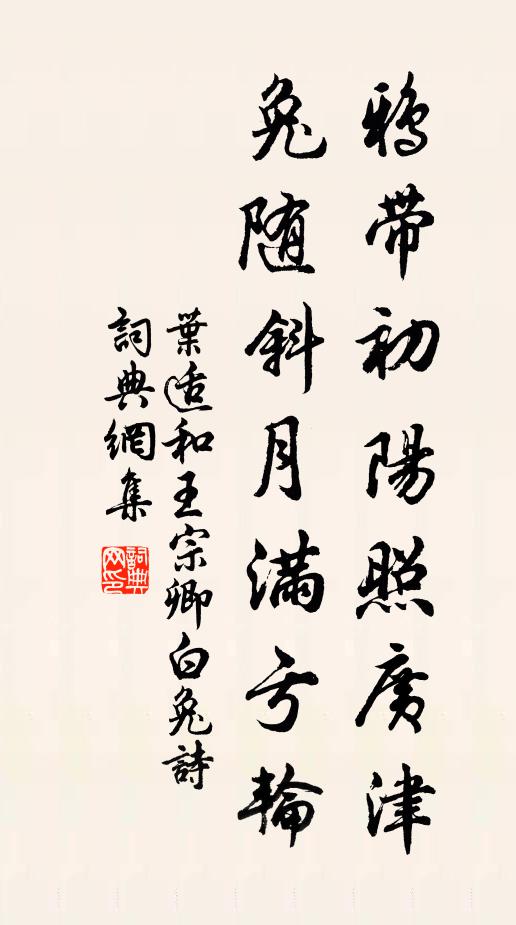 鴉帶初陽照廣津
兔随斜月滿亏輪
葉适和王宗卿白兔詩
詞典網集
詞典网印